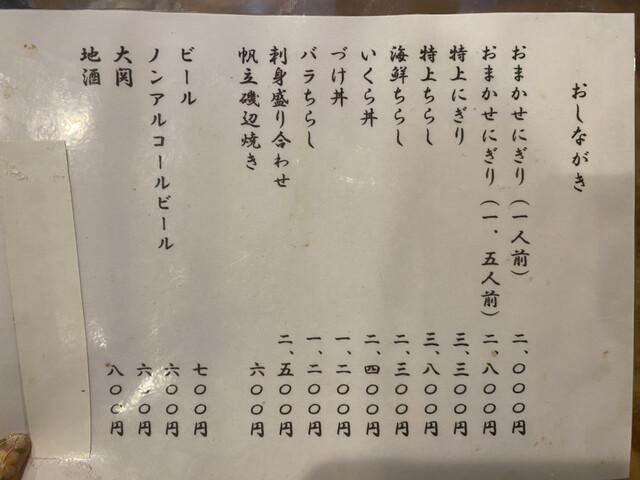 おしながき
おまかせにぎり（一人前） 二、〇〇〇円
おまかせにぎり（一、五人前） 二、八〇〇円
特上にぎり 三、三〇〇円
特上ちらし 三、八〇〇円
海鮮ちらし 二、三〇〇円
いくら丼 二、四〇〇円
づけ丼 一、二〇〇円
バラちらし 一、二〇〇円
刺身盛り合わせ 二、五〇〇円
帆立磯辺焼き 六〇〇円
ビール 七〇〇円
ノンアルコールビール 六〇〇円
大関 六〇〇円
地酒 八〇〇円